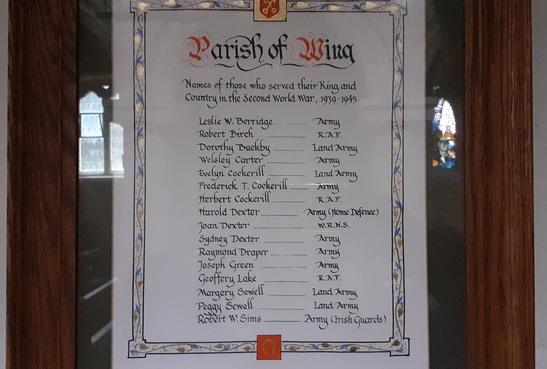 Parish of Wing
Names of those who served their King and
Country in the Second World War, 1939-1945.
Leslie W. Berridge Army
Robert Birch R.A.F.
Dorothy Buckby Land Army
Welsley Carter Army
Evelyn Cockerill Land Army
Frederick T. Cockerill Army
Herbert Cockerill R.A.F.
Harold Dexter Army (Home Defence)
Joan Dexter W.R.N.S.
Sydney Dexter Army
Raymond Draper Army
Joseph Green Army
Geoffery Lake R.A.F.
Margery Sewell Land Army
Peggy Sewell Land Army
Robert W. Sims Army (Irish Guards)